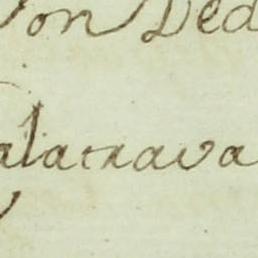 on Ded
alatrava